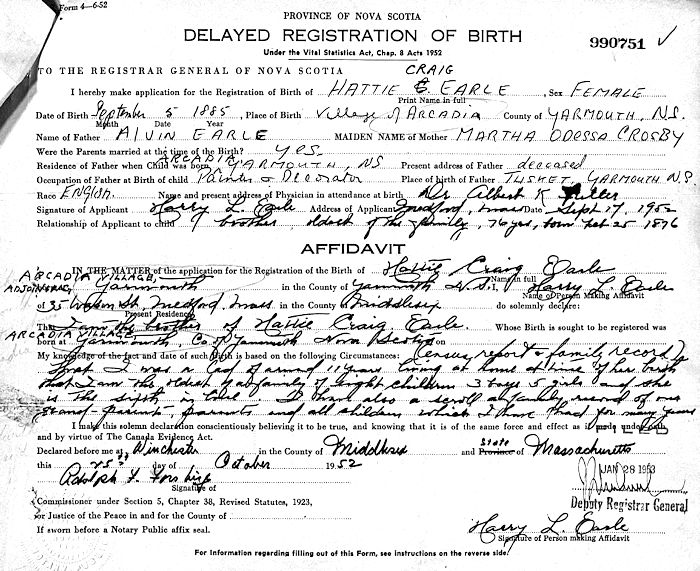 Form 4—6-52
PROVINCE OF NOVA SCOTIA
DELAYED REGISTRATION OF BIRTH
Under the Vital Statistics Act, Chap. 8 Acts 1952
990751 ✓
TO THE REGISTRAR GENERAL OF NOVA SCOTIA CRAIG
I hereby make application for the Registration of Birth of HATTIE C. EARLE, Sex FEMALE
Print Name in full
Date of Birth September 5 1885, Place of Birth Village of ARCADIA County of YARMOUTH, N.S.
Month Date Year
Name of Father Alvin EARLE MAIDEN NAME of Mother MARTHA ODESSA CROSBY
Were the Parents married at the time of the Birth? yes.
ARCADIA
Residence of Father when Child was born, YARMOUTH, NS Present address of Father deceased
Occupation of Father at Birth of child Painter & Decorator Place of birth of Father TUSKET, YARMOUTH N.S.
Race English. Name and present address of Physician in attendance at birth Dr Albert K Fuller
Signature of Applicant Harry L. Earle Address of Applicant Medford, Mass Date Sept 17, 1952
Relationship of Applicant to child brother, oldest of the family, 76 yrs, born Feb 25 1876
AFFIDAVIT
ARCADIA VILLAGE,
IN THE MATTER of the application for the Registration of the Birth of Hattie Craig Earle
Name in full
ADJOINING Yarmouth in the County of Yarmouth N.S., I, Harry L. Earle
Name of Person Making Affidavit
of 35 St., Medford, Mass. in the County of Middlesex do solemnly declare:
Present Residence
That I am the brother of Hattie Craig Earle. Whose Birth is sought to be registered was
ARCADIA VILLAGE,
born at Yarmouth, Co. of Yarmouth Nova Scotia
My knowledge of the fact and date of such Birth is based on the following Circumstances: Census report & family record
that I was a lad of around 11 years living at home at time of her birth
that I am the oldest of a family of eight children 3 boys 5 girls and she
is the sixth in line. I have also a scroll family record of our
grand parents, parents and all children which I have had for many years
I make this solemn declaration conscientiously believing it to be true, and knowing that it is of the same force and effect as if made under oath
and by virtue of The Canada Evidence Act.
Declared before me at Winchester in the County of Middlesex and State Province of Massachusetts
this 25th day of October 1952
JAN 28 1953
Adolph
Signature of
Deputy Registrar General
Commissioner under Section 5, Chapter 38, Revised Statutes, 1923,
or Justice of the Peace in and for the County of
If sworn before a Notary Public affix seal.
Harry L. Earle
Signature of Person making Affidavit
For Information regarding filling out of this Form, see instructions on the reverse side.